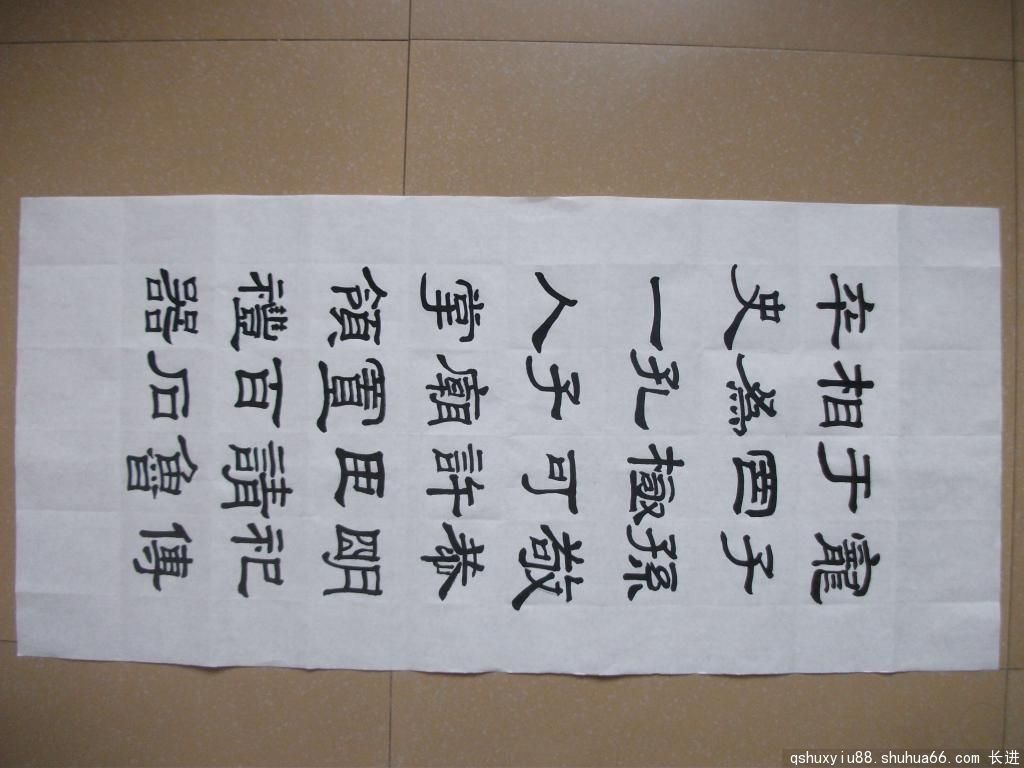 寵子孫敬恭明祀傳
于罔極可許臣請魯
相爲孔子廟置百石
卒史一人掌領禮器
qshuxyiu88.shuhua66.com 长进